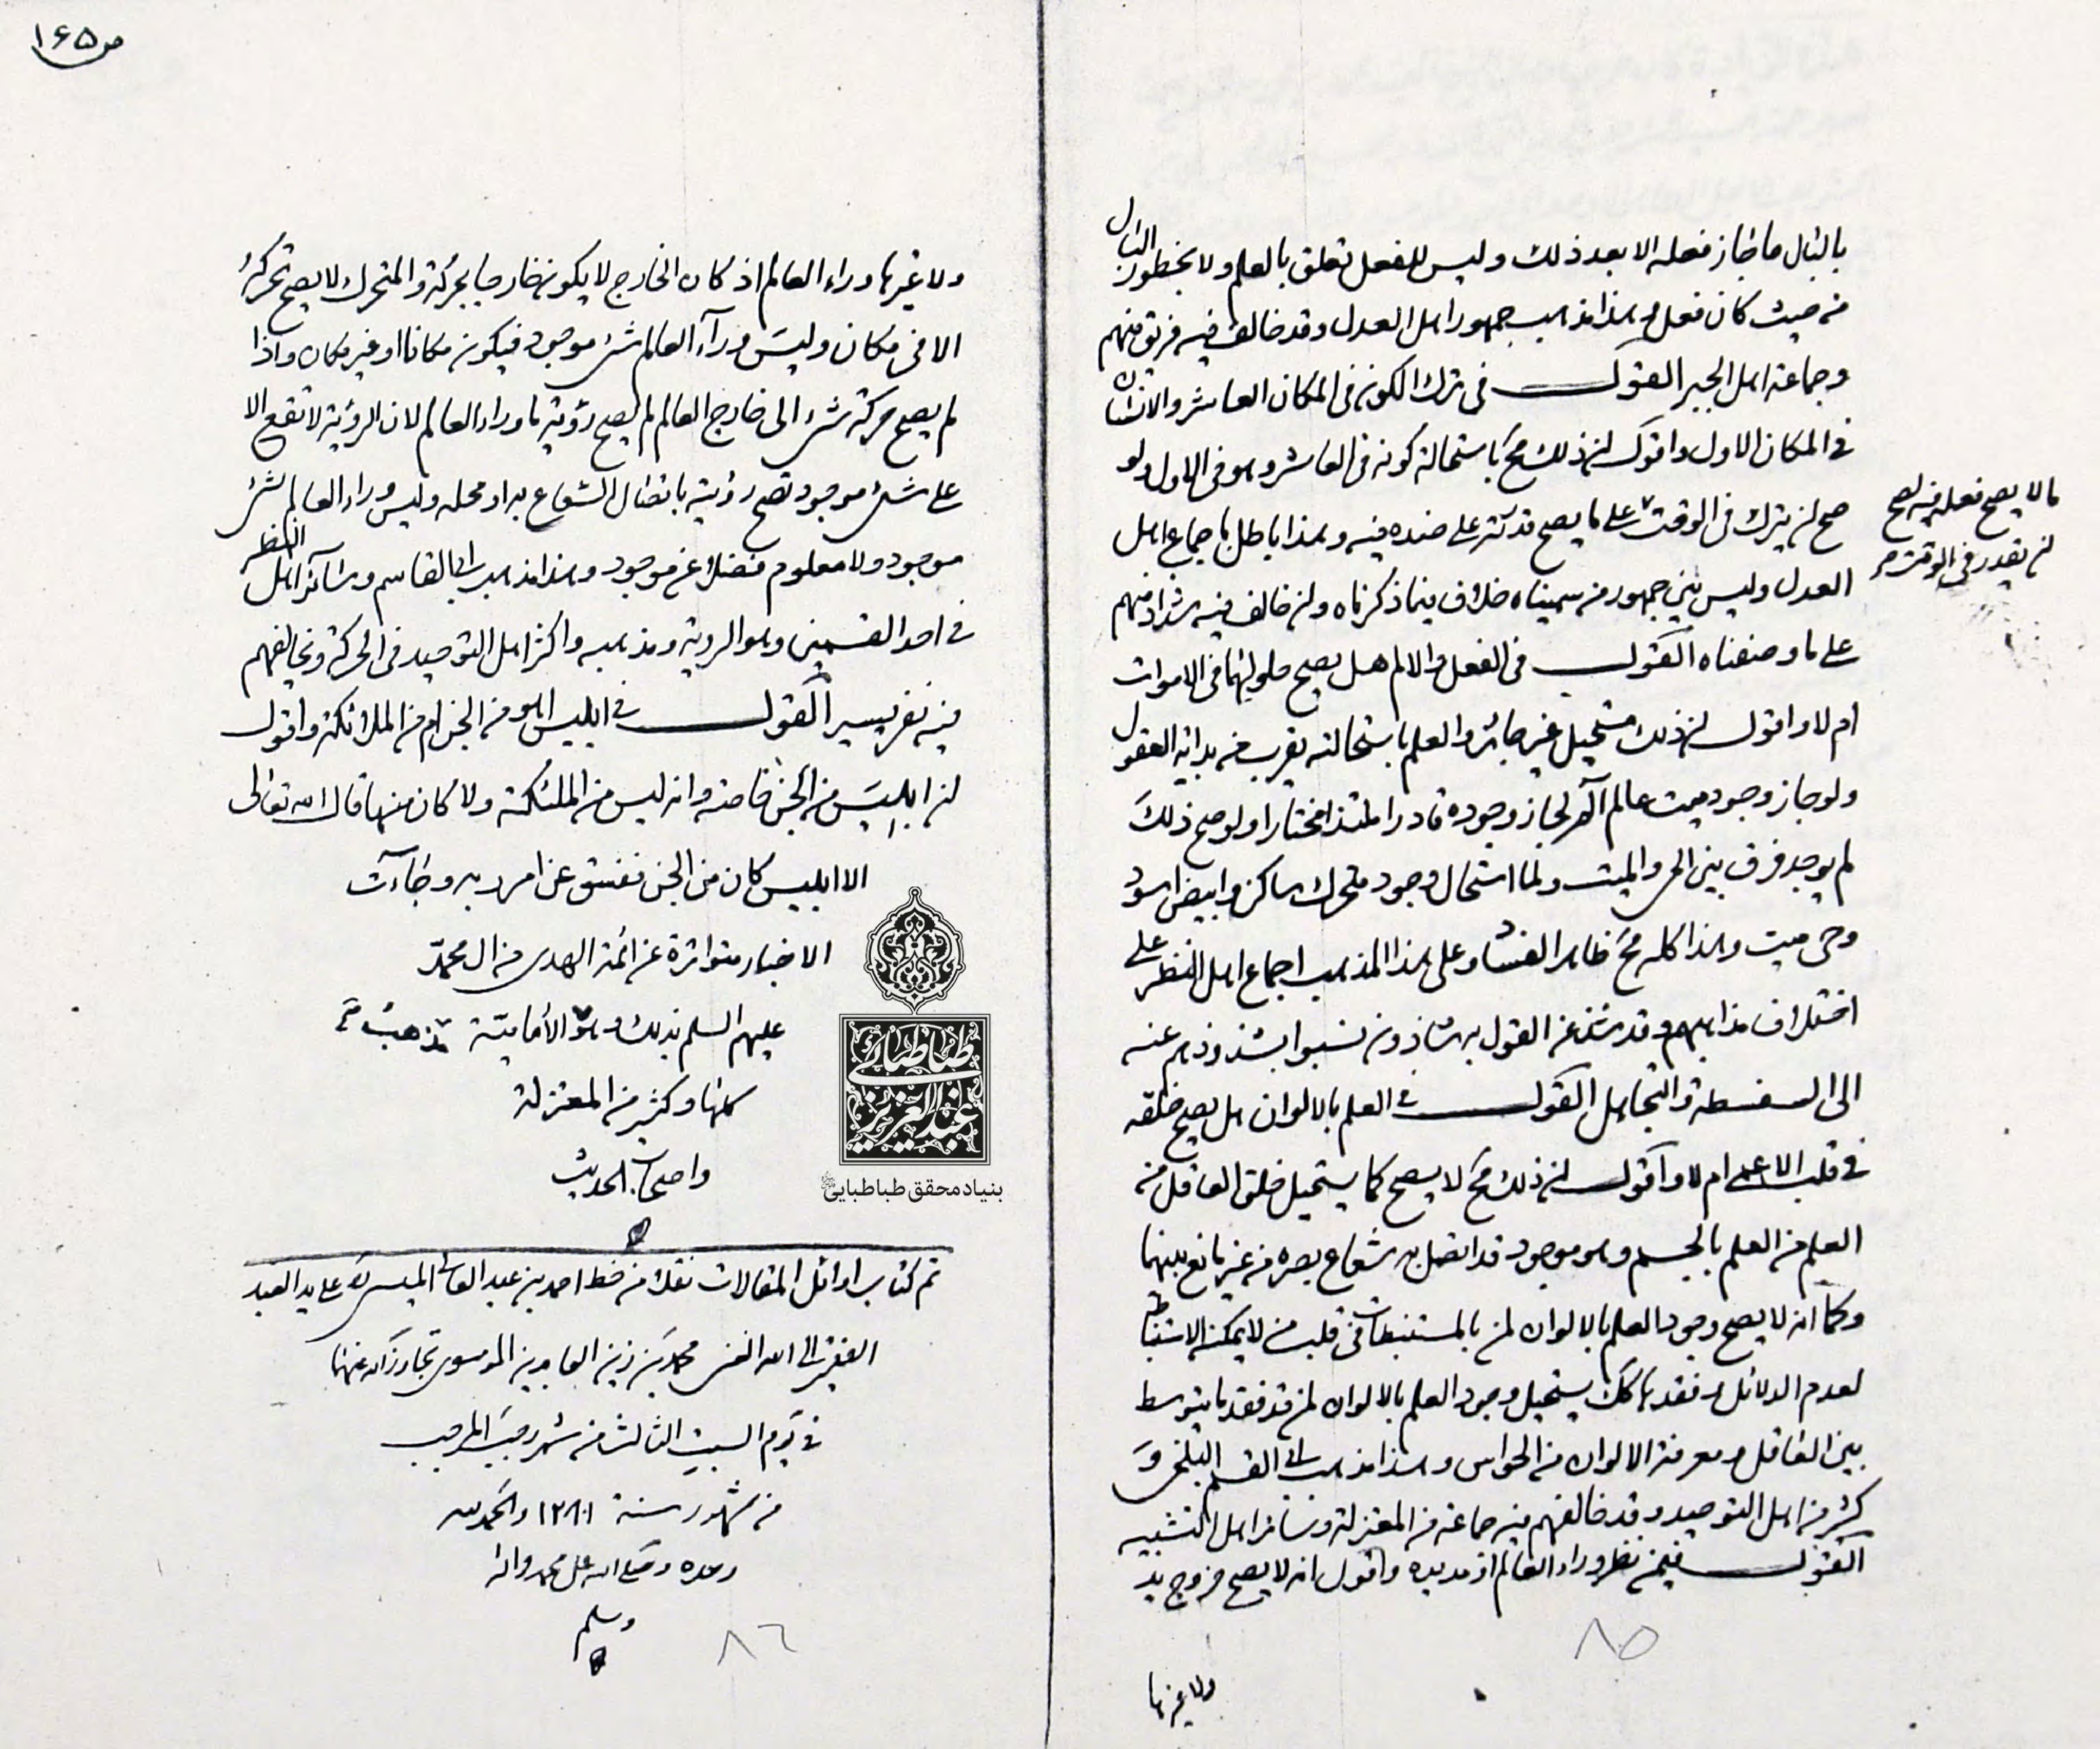 بالبال ما جاز فعله الا بعد ذلك وليس للفعل تعلق بالعلم ولا بخطور البال
من حيث كان فعل وهذا مذهب جمهور اهل العدل وقد خالف فيه فريق منهم
وجماعة اهل الجبر القول في ترك الكون في المكان العاشر والانسان
في المكان الاول واقول ان ذلك مح باستحالة كونه في العاشر وهو في الاول ولو
صح ان يترك في الوقت على ما يصح قدرته على ضده فيه وهذا باطل باجماع اهل
ما لا يصح فعله فيه لصح
ان يقدر في الوقت
العدل وليس بين جمهور من سميناه خلاف فيما ذكرناه وان خالف فيه شذاذ منهم
على ما وصفناه القول في الفعل والالم هل يصح حلولهما في الاموات
ام لا واقول ان ذلك مستحيل غير جائز والعلم باستحالته يقرب من بداية العقول
ولو جاز وجود ميت عالم آلم لجاز وجوده قادرا ملتذا مختارا ولو صح ذلك
لم يوجد فرق بين الحي والميت ولما استحال وجود متحرك ساكن وابيض اسود
وحي ميت وهذا كله مح ظاهر الفساد وعلى هذا المذهب اجماع اهل النظر على
اختلاف مذاهبهم وقد شذ عن القول به شاذون نسبوا بشذوذهم عنه
الى السفسطة والتجاهل القول في العلم بالالوان هل يصح خلقه
في قلب الاعمى ام لا واقول ان ذلك مح لا يصح كما يستحيل خلق العاقل من
العلم من العلم بالجسم وهو موجود قد اتصل به شعاع بصره من غير مانع بينهما
وكما انه لا يصح وجود العلم بالالوان لمن بالمستنبطات في قلب من لا يمكنه الاستنباط
لعدم الدلائل وفقدها كك يستحيل وجود العلم بالالوان لمن قد فقد ما يتوسط
بين العاقل ومعرفة الالوان من الحواس وهذا مذهب ابي القسم البلخي و
كثير من اهل التوحيد وقد خالفهم فيه جماعة من المعتزلة وسائر اهل التشبيه
القول فيمن نظر وراء العالم او مد يده واقول انه لا يصح خروج يد
٨٥
ولا غيرها
ص ١٦٥
ولا غيرها وراء العالم اذ كان الخارج لا يكون خارجا بحركة والمتحرك لا يصح تحركه
الا في مكان وليس ورآء العالم شئ موجود فيكون مكانا او غير مكان واذا
لم يصح حركة شئ الى خارج العالم لم يصح رؤية ما وراء العالم لان الرؤية لا تقع الا
على شئ موجود تصح رؤيته باتصال الشعاع به او محله وليس وراء العالم شئ
موجود ولا معلوم فضلا عن موجود وهذا مذهب ابي القاسم وسائر اهل النظر
في احد القسمين وهو الروية ومذهبه واكثر اهل التوحيد في الحركة ويخالفهم
فيه نفر يسير القول في ابليس اهو من الجن ام من الملائكة واقول
ان ابليس من الجن خاصة وانه ليس من الملئكة ولا كان منها قال الله تعالى
الا ابليس كان من الجن ففسق عن امر ربه وجاءت
الاخبار متواترة عن ائمة الهدى من ال محمد
عليهم السلم بذلك وهو الامامية مذهب
كلها وكثير من المعتزلة
واصحاب الحديث
تم كتاب اوائل المقالات نقلا من خط احمد بن عبد العالي الميسي على يد العبد
الفقير الى الله الغني محمد بن زين العابدين الموسوي تجاوز الله عنهما
في يوم السبت الثالث من شهر رجب المرجب
من شهور سنة ١٢٨١ والحمد لله
وحده وصلى الله على محمد واله
وسلم
٨٦
طباطبائي
عبد العزيز
بنیاد محقق طباطبایی